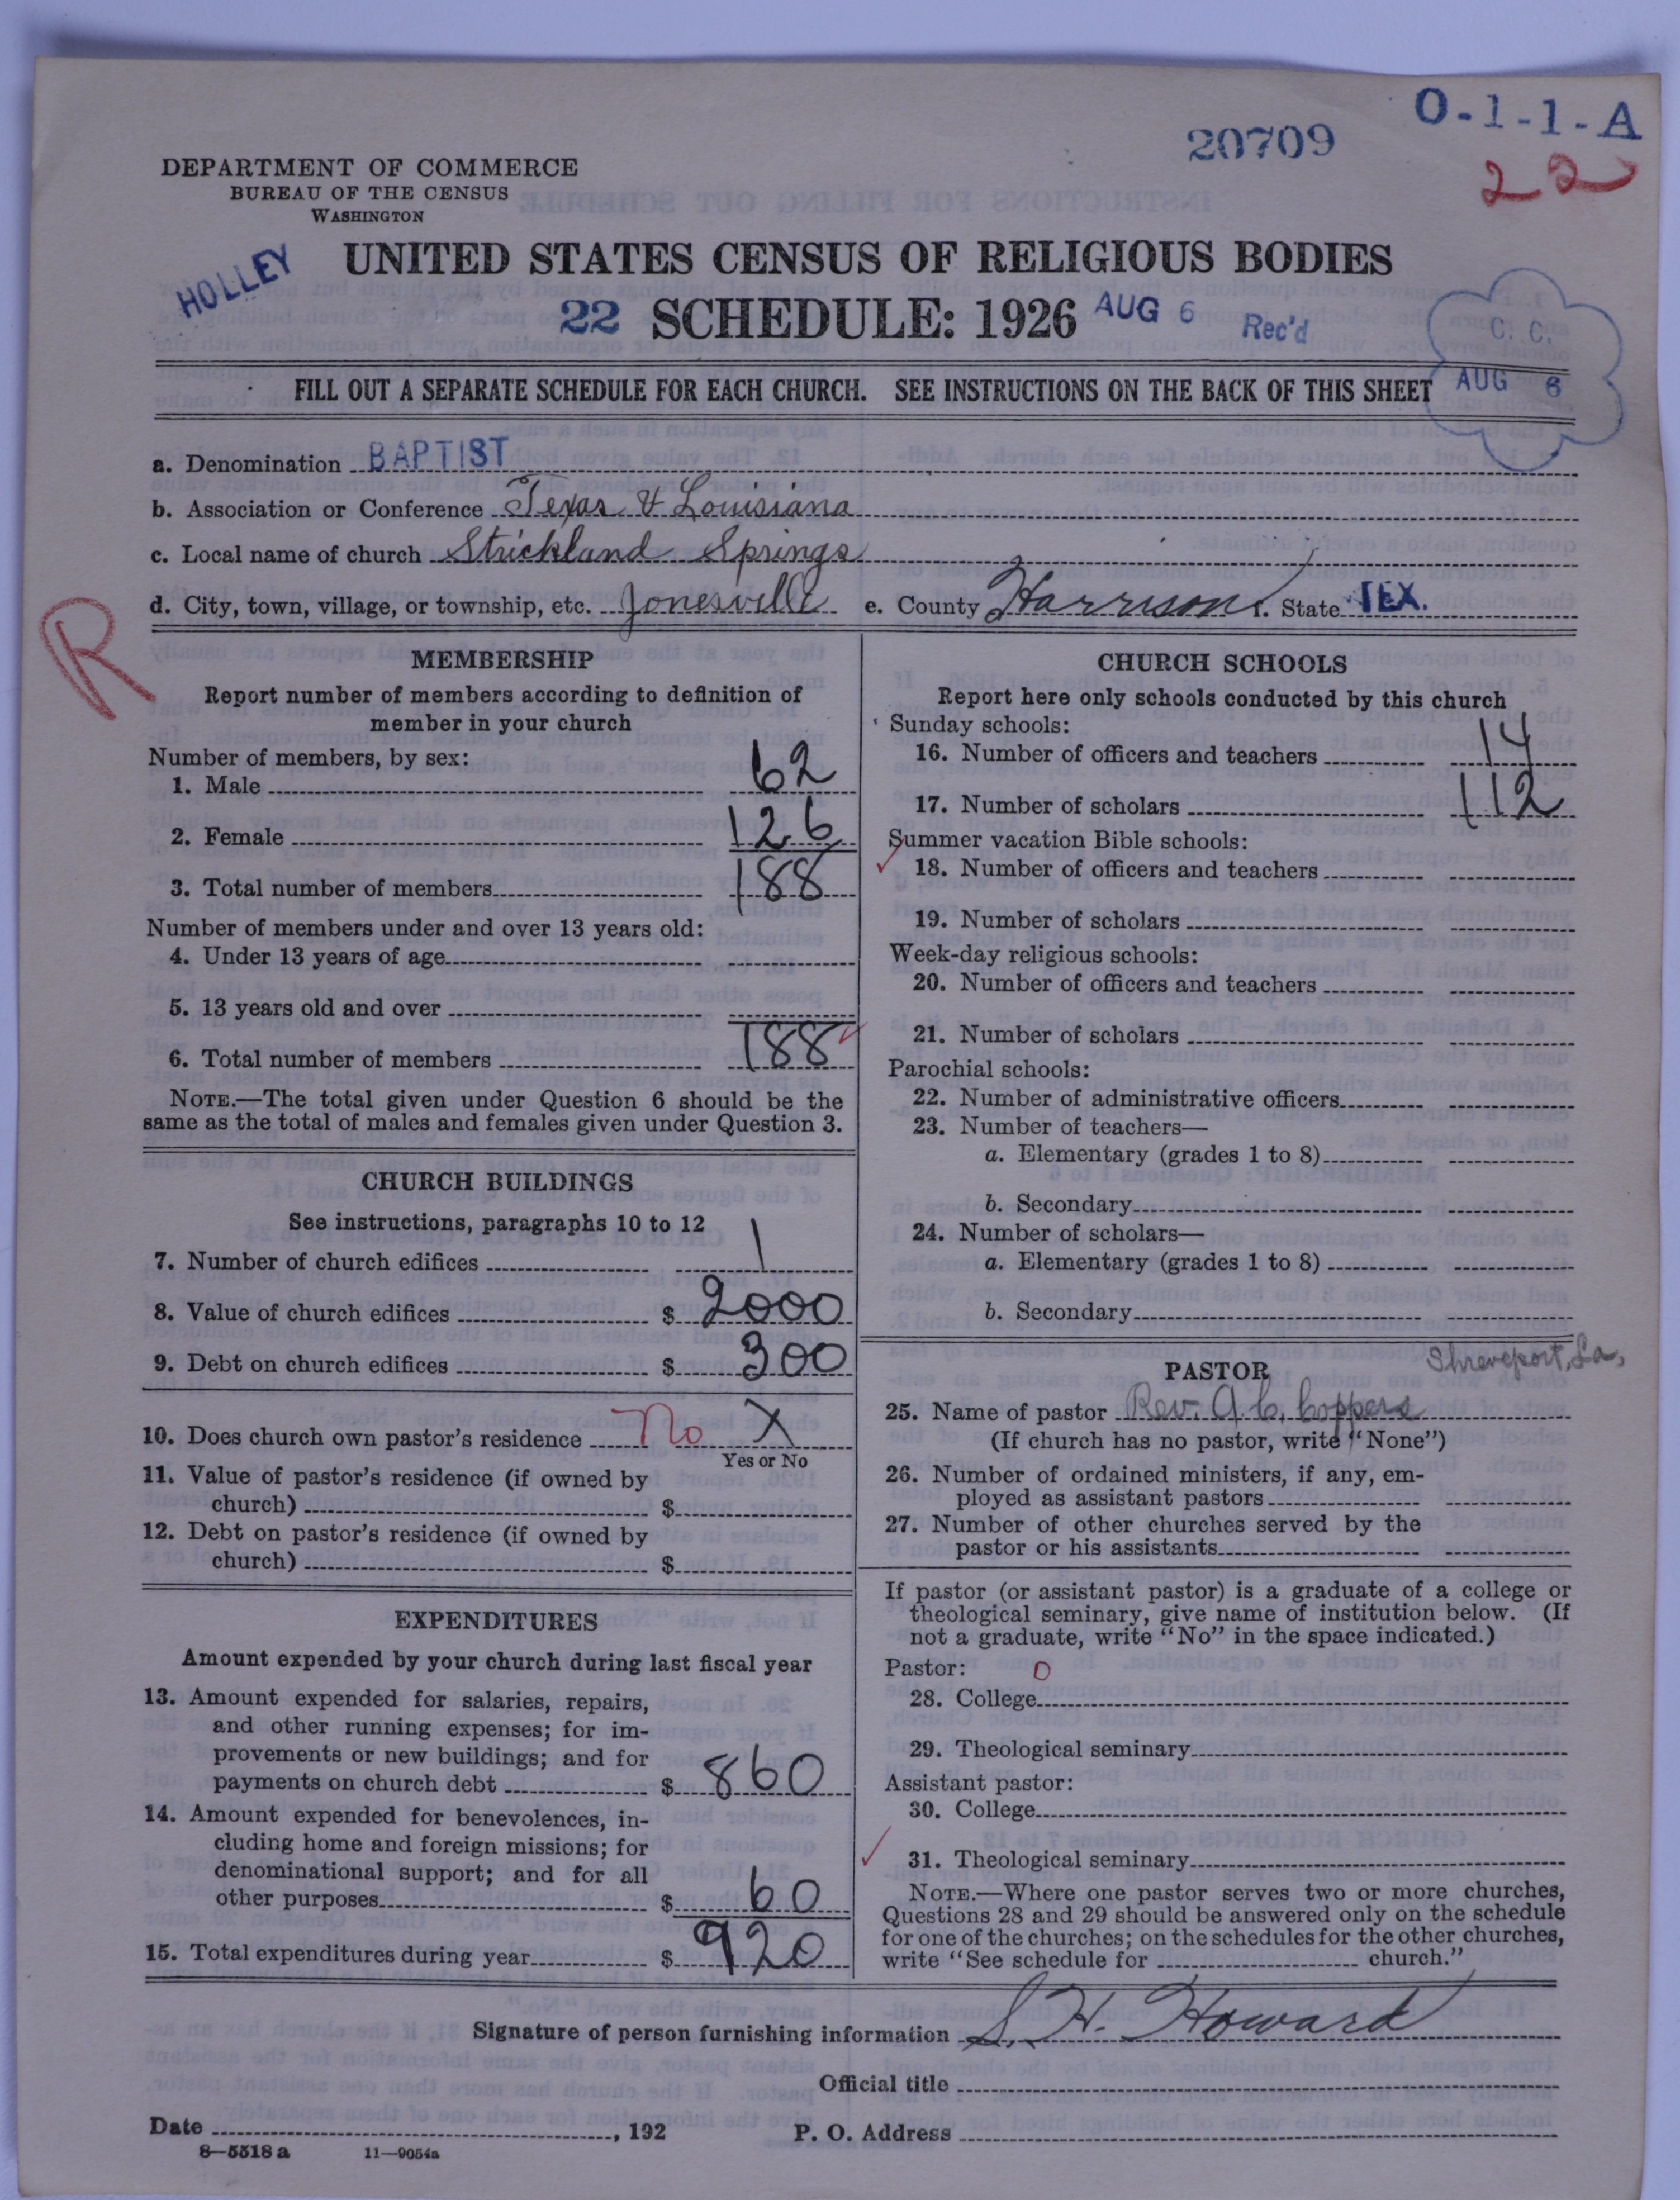 O-1-1-A
20709
22
DEPARTMENT OF COMMERCE
BUREAU OF THE CENSUS
WASHINGTON
HOLLEY
UNITED STATES CENSUS OF RELIGIOUS BODIES
22 SCHEDULE: 1926 AUG 6 Rec'd
C. C.
AUG 6
FILL OUT A SEPARATE SCHEDULE FOR EACH CHURCH. SEE INSTRUCTIONS ON THE BACK OF THIS SHEET
a. Denomination BAPTIST
b. Association or Conference Texas & Louisiana
c. Local name of church Strickland Springs
d. City, town, village, or township, etc. Jonesville e. County Harrison f. State TEX.
R
MEMBERSHIP
Report number of members according to definition of
member in your church
Number of members, by sex:
1. Male 62
2. Female 126
3. Total number of members 188
Number of members under and over 13 years old:
4. Under 13 years of age
5. 13 years old and over
6. Total number of members 188
NOTE.—The total given under Question 6 should be the
same as the total of males and females given under Question 3.
CHURCH BUILDINGS
See instructions, paragraphs 10 to 12
7. Number of church edifices 1
8. Value of church edifices $ 2000
9. Debt on church edifices $ 300
10. Does church own pastor's residence No X
Yes or No
11. Value of pastor's residence (if owned by
church) $
12. Debt on pastor's residence (if owned by
church) $
EXPENDITURES
Amount expended by your church during last fiscal year
13. Amount expended for salaries, repairs,
and other running expenses; for im-
provements or new buildings; and for
payments on church debt $ 860
14. Amount expended for benevolences, in-
cluding home and foreign missions; for
denominational support; and for all
other purposes $ 60
15. Total expenditures during year $ 920
CHURCH SCHOOLS
Report here only schools conducted by this church
Sunday schools:
16. Number of officers and teachers 14
17. Number of scholars 112
Summer vacation Bible schools:
18. Number of officers and teachers
19. Number of scholars
Week-day religious schools:
20. Number of officers and teachers
21. Number of scholars
Parochial schools:
22. Number of administrative officers
23. Number of teachers—
a. Elementary (grades 1 to 8)
b. Secondary
24. Number of scholars—
a. Elementary (grades 1 to 8)
b. Secondary
PASTOR
Shreveport, La,
25. Name of pastor Rev. A. C. Coppers
(If church has no pastor, write "None")
26. Number of ordained ministers, if any, em-
ployed as assistant pastors
27. Number of other churches served by the
pastor or his assistants
If pastor (or assistant pastor) is a graduate of a college or
theological seminary, give name of institution below. (If
not a graduate, write "No" in the space indicated.)
Pastor: 0
28. College
29. Theological seminary
Assistant pastor:
30. College
31. Theological seminary
NOTE.—Where one pastor serves two or more churches,
Questions 28 and 29 should be answered only on the schedule
for one of the churches; on the schedules for the other churches,
write "See schedule for church."
Signature of person furnishing information S. H. Howard
Official title
Date , 192 P. O. Address
8—5518a 11—9054a